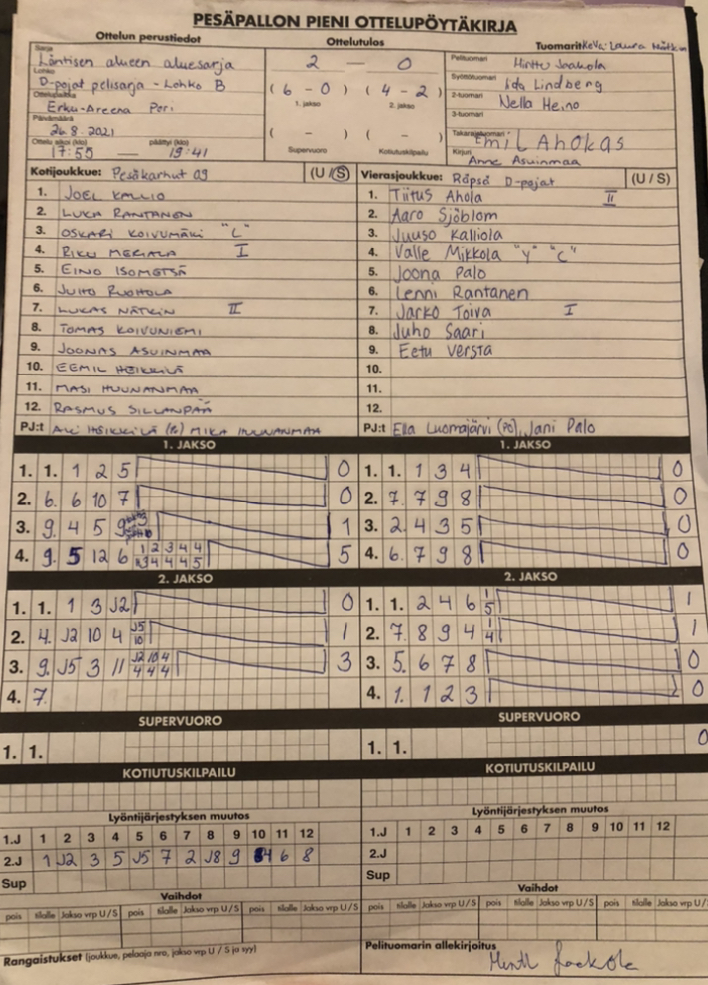 PESÄPALLON PIENI OTTELUPÖYTÄKIRJA
Ottelun perustiedot
Ottelutulos
Tuomarit
Sarja
Läntisen alueen aluesarja
Lohko
D-pojat pelisarja - Lohko B
Ottelupaikka
Erku-Areena Pori
Päivämäärä
26.8.2021
Ottelu alkoi (klo) päättyi (klo)
17:55 — 19:41
2 — 0
(6 - 0) (4 - 2)
1. jakso 2. jakso
( - ) ( - )
Supervuoro Kotiutuskilpailu
Pelituomari
Syöttötuomari
Ida Lindberg
2-tuomari
Nella Heino
3-tuomari
Takarajatuomari
Emil Ahokas
Kirjuri
Anne Asuinmaa
Kotijoukkue: Pesäkarhut 09 (U / S)
1. JOEL KALLIO
2. LUKA RANTANEN
3. OSKARI KOIVUMÄKI "C"
4. RIKU MERIALA I
5. EINO ISOMETSÄ
6. JUHO RUOHOLA
7. LUKAS NÄTKIN II
8. TOMAS KOIVUNIEMI
9. JOONAS ASUINMAA
10. EEMIL HEIKKILÄ
11. MASI HUUNANMAA
12. RASMUS SILLANPÄÄ
PJ:t HEIKKILÄ MIKA HUUNANMAA
Vierasjoukkue: Räpsä D-pojat (U / S)
1. Tiitus Ahola II
2. Aaro Sjöblom
3. Juuso Kalliola
4. Valle Mikkola "Y" "C"
5. Joona Palo
6. Lenni Rantanen
7. Jarko Toiva I
8. Juho Saari
9. Eetu Versta
10.
11.
12.
PJ:t Ella Luomajärvi (PO), Jani Palo
1. JAKSO
1. 1. 1 2 5 0
2. 6. 6 10 7 0
3. 9. 4 5 9 1
4. 9. 5 12 6 5
1. JAKSO
1. 1. 1 3 4 0
2. 7. 7 9 8 0
3. 2. 4 3 5 0
4. 6. 7 9 8 0
2. JAKSO
1. 1. 1 3 J2 0
2. 4. J2 10 4 J5 10 1
3. 9. J5 3 11 J2 10 4 4 4 4 3
4. 7.
2. JAKSO
1. 1. 2 4 6 1 5 1
2. 7. 8 9 4 1 4 1
3. 5. 6 7 8 0
4. 1. 1 2 3 0
SUPERVUORO
1. 1.
SUPERVUORO
1. 1. 0
KOTIUTUSKILPAILU
KOTIUTUSKILPAILU
Lyöntijärjestyksen muutos
1.J 1 2 3 4 5 6 7 8 9 10 11 12
2.J 1 J2 3 5 J5 7 2 J8 9 4 6 8
Sup
Lyöntijärjestyksen muutos
1.J 1 2 3 4 5 6 7 8 9 10 11 12
2.J
Sup
Vaihdot
pois tilalle Jakso vrp U/S pois tilalle Jakso vrp U/S pois tilalle Jakso vrp U/S
Vaihdot
pois tilalle Jakso vrp U/S pois tilalle Jakso vrp U/S pois tilalle Jakso vrp U/
Rangaistukset (joukkue, pelaaja nro, jakso vrp U / S ja syy)
Pelituomarin allekirjoitus